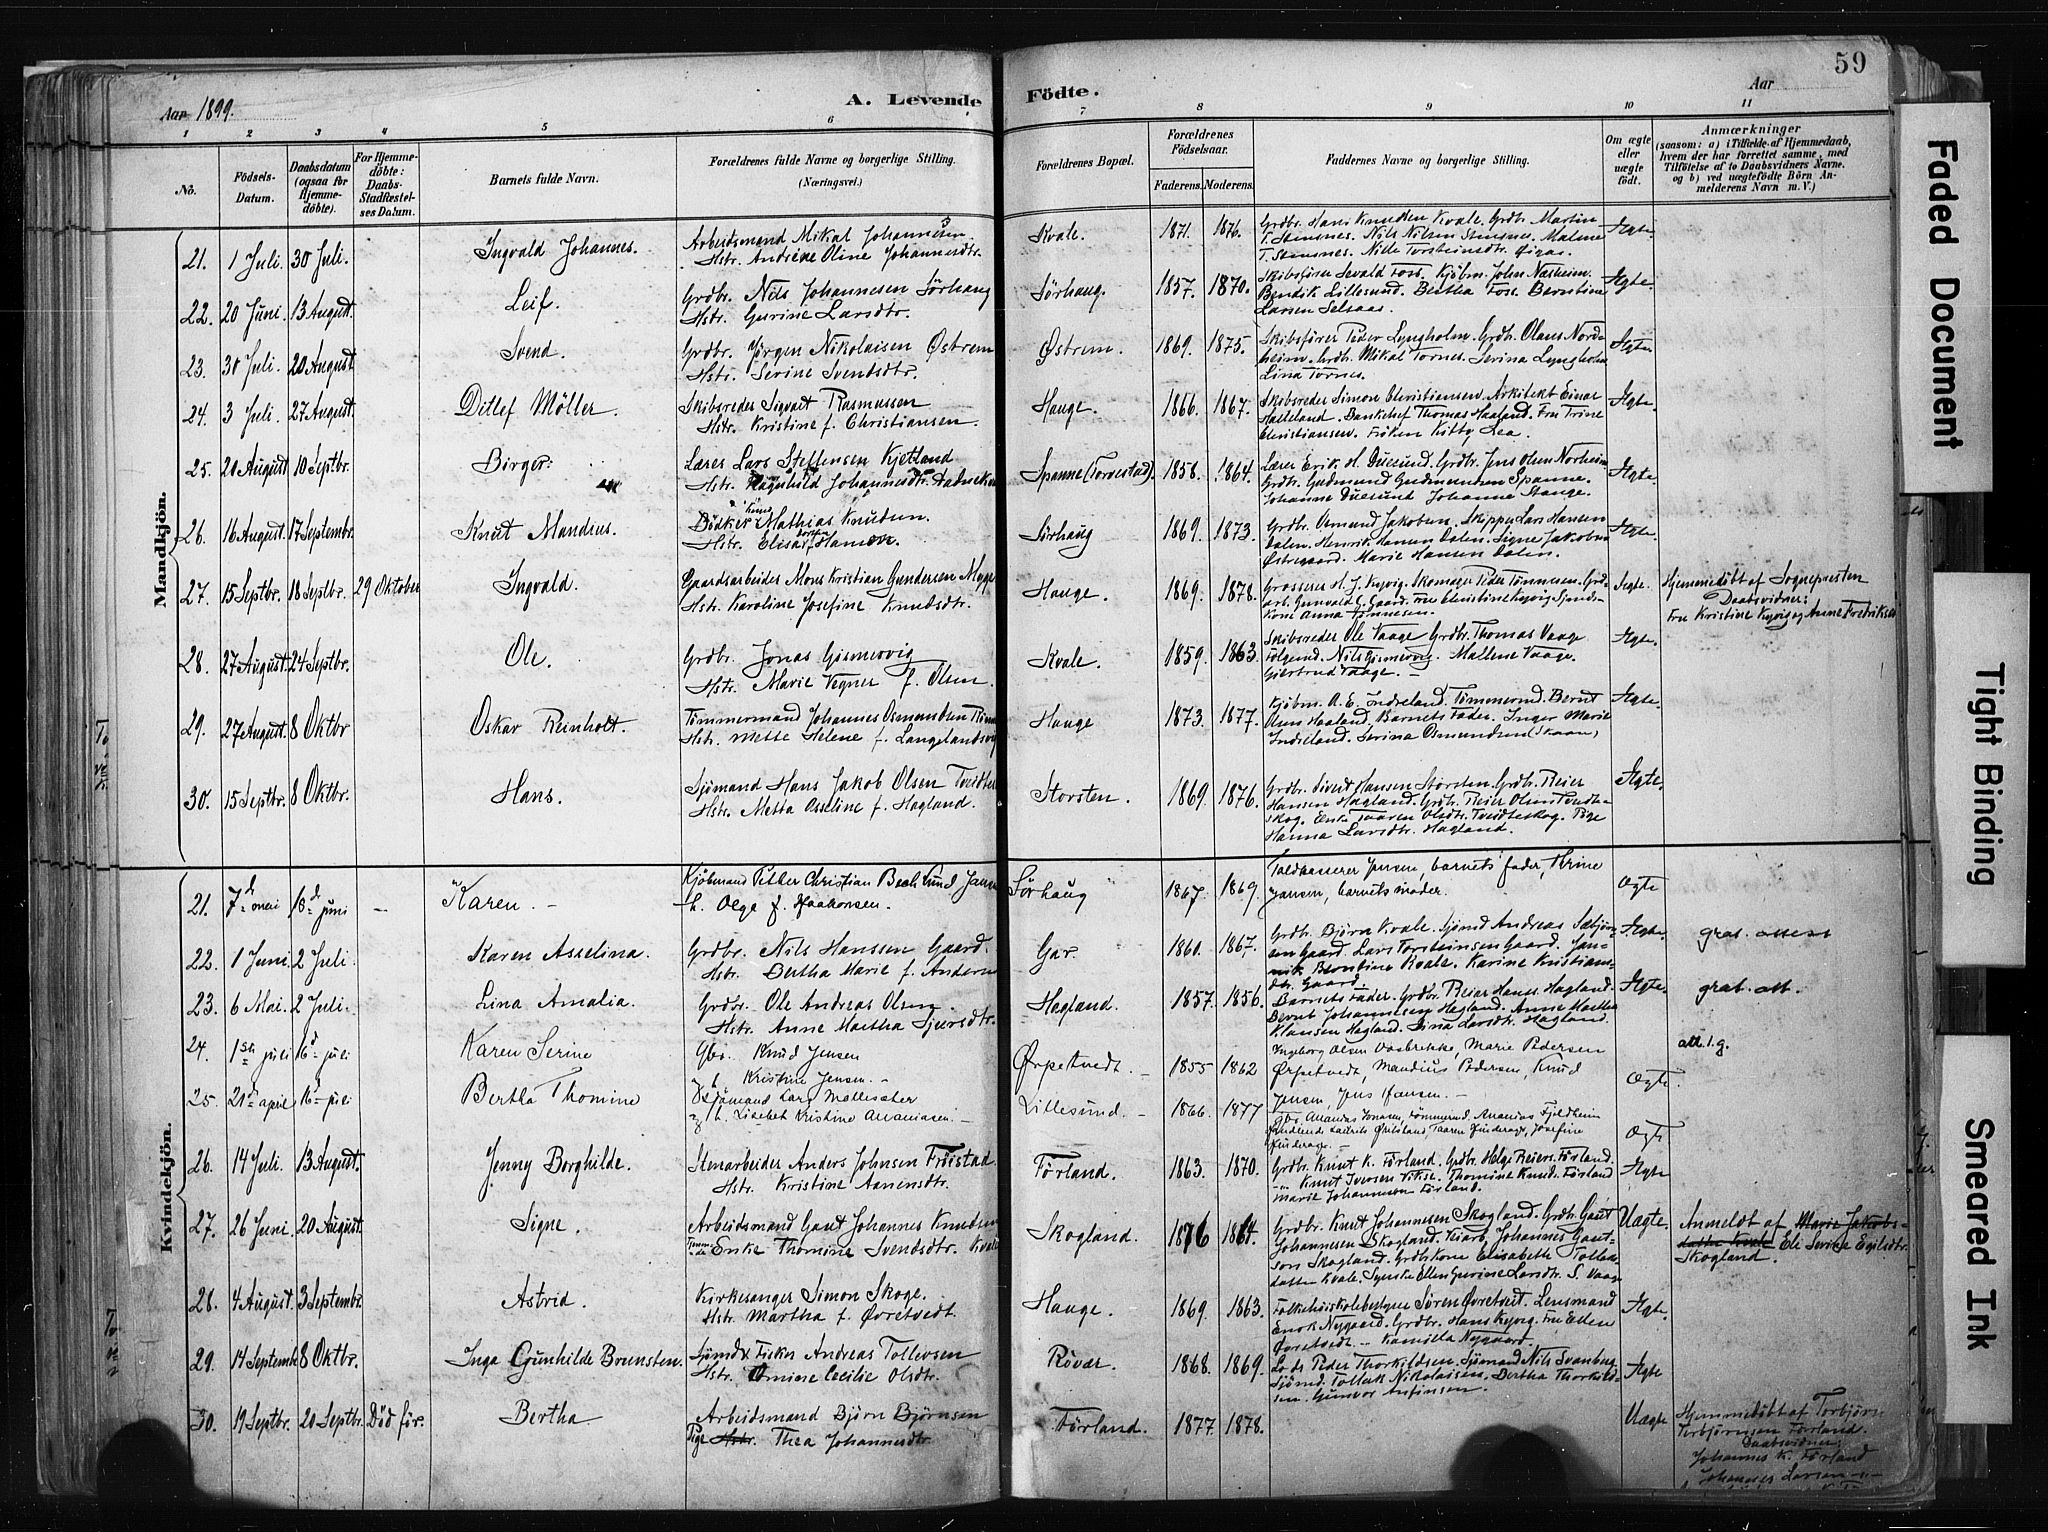 59
Aar 1899.
A. Levende
Födte.
Aar
1 2 3 4 5 6 7 8 9 10 11
No.
Födsels-Datum.
Daabsdatum (ogsaa for Hjemmedöbte).
For Hjemmedöbte: Daabs-Stadfæstelses Datum.
Barnets fulde Navn.
Forældrenes fulde Navne og borgerlige Stilling. (Næringsvei.)
Forældrenes Bopæl.
Forældrenes Födselsaar.
Faderens. Moderens.
Faddernes Navne og borgerlige Stilling.
Om ægte eller uægte födt.
Anmærkninger
(saasom: a) i Tilfælde af Hjemmedaab, hvem der har forrettet samme, med Tilföielse af to Daabsvidners Navne. og b) ved uægtefödte Börn Anmelderens Navn m. V.)
Mandkjön.
21. 1 Juli. 30 Juli. Ingvald Johannes. Arbeidsmand Mikal Johannesen. Kvale. 1871. 1876. Grdbr. Hans Knudsen Kvale. Grdbr. Martin Ægte.
Hstr. Andrine Oline Johannesdtr. T. Stensnes. Nils Nilsen Stensnes. Malene
T. Stensnes.
22. 20 Juni. 13 August. Leif. Grdbr. Nils Johannesen Sörhaug Sörhaug. 1857. 1870. Skibsförer Sevald Foss. Kjöbm. John Næsheim. Ægte.
Hstr. Gurine Larsdtr. Bendik Lillesund. Bertha Foss. Berntine
Larsen Selsaas.
23. 30 Juli. 20 August Svend. Grdbr. Jörgen Nikolaisen Østrem Østrem. 1869. 1875. Skibsförer Peder Lyngholm. Grdbr. Olaus Nord- Ægte
Hstr. Serine Svendsdtr. heim. Grdbr. Mikal Tornes. Serina Lyngholm
Lina Tornes.
24. 3 Juli. 27 August. Ditlef Möller. Skibsreder Sigvalt Rasmussen Hauge. 1866. 1867. Skibsreder Simon Christiansen. Arkitekt Einar Ægte.
Hstr. Kristine f. Christiansen. Halleland. Bankchef Thomas Haaland. Fru Trine
Christiansen. Fröken Kitty Lea.
25. 20 August 10 Septbr. Birger. Lærer Lars Steffensen Kjetland Spanne (Torvestad). 1858. 1864. Lærer Erik H. Duesund. Grdbr. Jens Olsen Norheim Ægte.
Hstr. Ragnhild Johannesdtr. Grdbr. Gudmund Gudmundsen Spanne.
Johanne Duesund Johanne Stange.
26. 16 August. 17 Septembr. Knut Mandrus. Bödker Mathias Knudsen. Sörhaug 1869. 1873. Grdbr. Osmund Jakobsen. Skipper Lars Hansen Ægte.
Hstr. Elisa Hansen. Dalen. Henrik Hansen Dalen. Signe Jakobsen
Östregaard. Marie Hansen Dalen.
27. 15 Septbr. 18 Septbr. 29 Oktober Ingvald. Gaardsarbeider Mons Kristian Gundersen Hauge. 1869. 1878. Grosserer H. J. Kyvig. Skomager Peder Tönnesen. Ægte. Hjemmedöbt af Sognepresten
Hstr. Karoline Josefine Knudsdtr. arb. Gunvald C. Gaard. Fru Christine Kyvig Daabsvidner:
Kone Anna Tönnesen. Fru Kristine Kyvig og Anne Fredriksen
28. 27 August. 24 Septbr. Ole. Grdbr. Jonas Gismervig Kvale. 1859. 1863. Skibsreder Ole Vaage Grdbr. Thomas Vaage Ægte.
Hstr. Marie Vegner f. Olsen. Nils Gismervig. Mallene Vaage.
Gjertrud Vaage.
29. 27 August. 8 Oktbr Oskar Reinholt. Tömmermand Johannes Osmundsen Hauge 1873. 1877. Kjöbm. A. E. Indreland. Tömmermd. Bernt Ægte.
Hstr. Mette Helene f. Langelandsvig Olsen Haaland. Barnets Fader. Inger Marie
Indreland. Serina Osmundsen (Skaar)
30. 15 Septbr. 8 Oktbr. Hans. Sjömand Hans Jakob Olsen Storsten. 1869. 1876. Grdbr. Sivert Hansen Storsten. Grdbr. Reier Ægte.
Hstr. Metta Oseline f. Hagland. Hansen Hagland. Grdbr. Reier Olsen Tveidte-
skog. Enke Taaren Olsdtr. Tveidteskog. Pige
Hanna Larsdtr. Hagland.
Kvindekjön.
21. 7de mai 18de juni – Karen. – Kjöbmand Petter Christian Bech Lund Jansen Sörhaug 1867. 1869. Toldkasserer Jensen, barnets fader, Thrine Ægte
h. Olga f. Haakonsen. Jansen, barnets moder.
22. 1 Juni 2 Juli. Karen Asselina. Grdbr. Nils Hanssen Gaard. Gar. 1860. 1867. Grdbr. Björn Kvale. Sjömd Andreas Ægte. grat. attest
Hstr. Bertha Marie f. Anders Gaard. Lars Torsteinsen Gaard.
Berntine Kvale. Karine Kristians-
dtr. Gaard
23. 6 Mai. 2 Juli. Lina Amalia. Grdbr. Ole Andreas Olsen. Hagland. 1857. 1856. Barnets Fader. Grdbr. Reiar Hans. Hagland. Ægte grat. att.
Hstr. Anne Martha Sjursdtr. Bernt Johannesen Hagland. Anne Martha
Klausen Hagland. Lina Larsdtr. Hagland.
24. 1ste juli 16de juli Karen Serine Gbr. Knud Jensen Ørpetvedt. – 1855 1862 Ingeborg Olsen Oasbrekke, Marie Pedersen Ægte. att. l. g.
h. Kristine Jensen. – Ørpetvedt, Mandius Pedersen, Knud
Jensen, Jens Hansen. –
25. 21de april 16de juli Bertha Thomine Sjömand Lars Mollesæter Lillesund. – 1866. 1877 Gbr. Ananias Jonasen, Tömmermd. Ananias Fjeldheim Ægte
h. Lisebet Kristine Ananiasen. –
26. 14 Juli. 13 August. Jenny Borghilde. Stenarbeider Anders Johnsen Fröistad Förland. 1863. 1870. Grdbr. Knut K. Förland. Grdbr. Helge Reiers. Förland. Ægte
Hstr. Kristine Aanensdtr. „ Knut Iversen Vikse. Thomine Knud. Förland
Marie Johannesen Förland.
27. 26 Juni. 20 August. Signe. Arbeidsmand Gaut Johannes Knudsen Skogland. 1876 1864. Grdbr. Knut Johannesen Skogland. Grdbr. Gaut Uægte. Anmeldt af Marie Jakobs-
Enke Thomine Svendsdtr. Kvale Johannesen Skogland. Johannes Gaut- datter Kvale Eli Serine Egilsdtr.
sön Skogland. Elisabeth Tollak- Skogland.
datter Kvale. Syerske Ellen Gurine Larsdtr. S. Vaage
28. 4 August. 3 Septembr. Astrid. Kirkesanger Simon Skoge. Hauge. 1869. 1863. Folkehöiskolebestyrer Sören Övretveit. Lensmand Ægte.
Hstr. Martha f. Övretvedt. Enok Nygaard. Grdbr. Hans Kyvig. Fru Ellen
Övretvedt. – Kamilla Nygaard.
29. 14 Septembr 8 Oktbr. Inga Gunhilde Brunsten. Sjömd & Fisker Andreas Tollevsen Rövær. 1868. 1869. Lods Peder Thorkildsen. Sjömand Nils Svanberg Ægte
Hstr. Omine Cecilie Olsdtr. Sjömd. Tollak Nikolaisen, Bertha Thorkild-
sen. Gunvor Anfinsen.
30. 19 Septbr. 20 Septbr. Död för. Bertha Arbeidsmand Björn Björnsen Förland. 1877. 1878. Uægte Hjemmedöbt af Torbjörn
Pige Hstr. Thea Johannesdtr. Torbjörnsen Förland.
Daabsvidner:
Johannes K. Förland
Johannes Larsen
Faded Document
Tight Binding
Smeared Ink